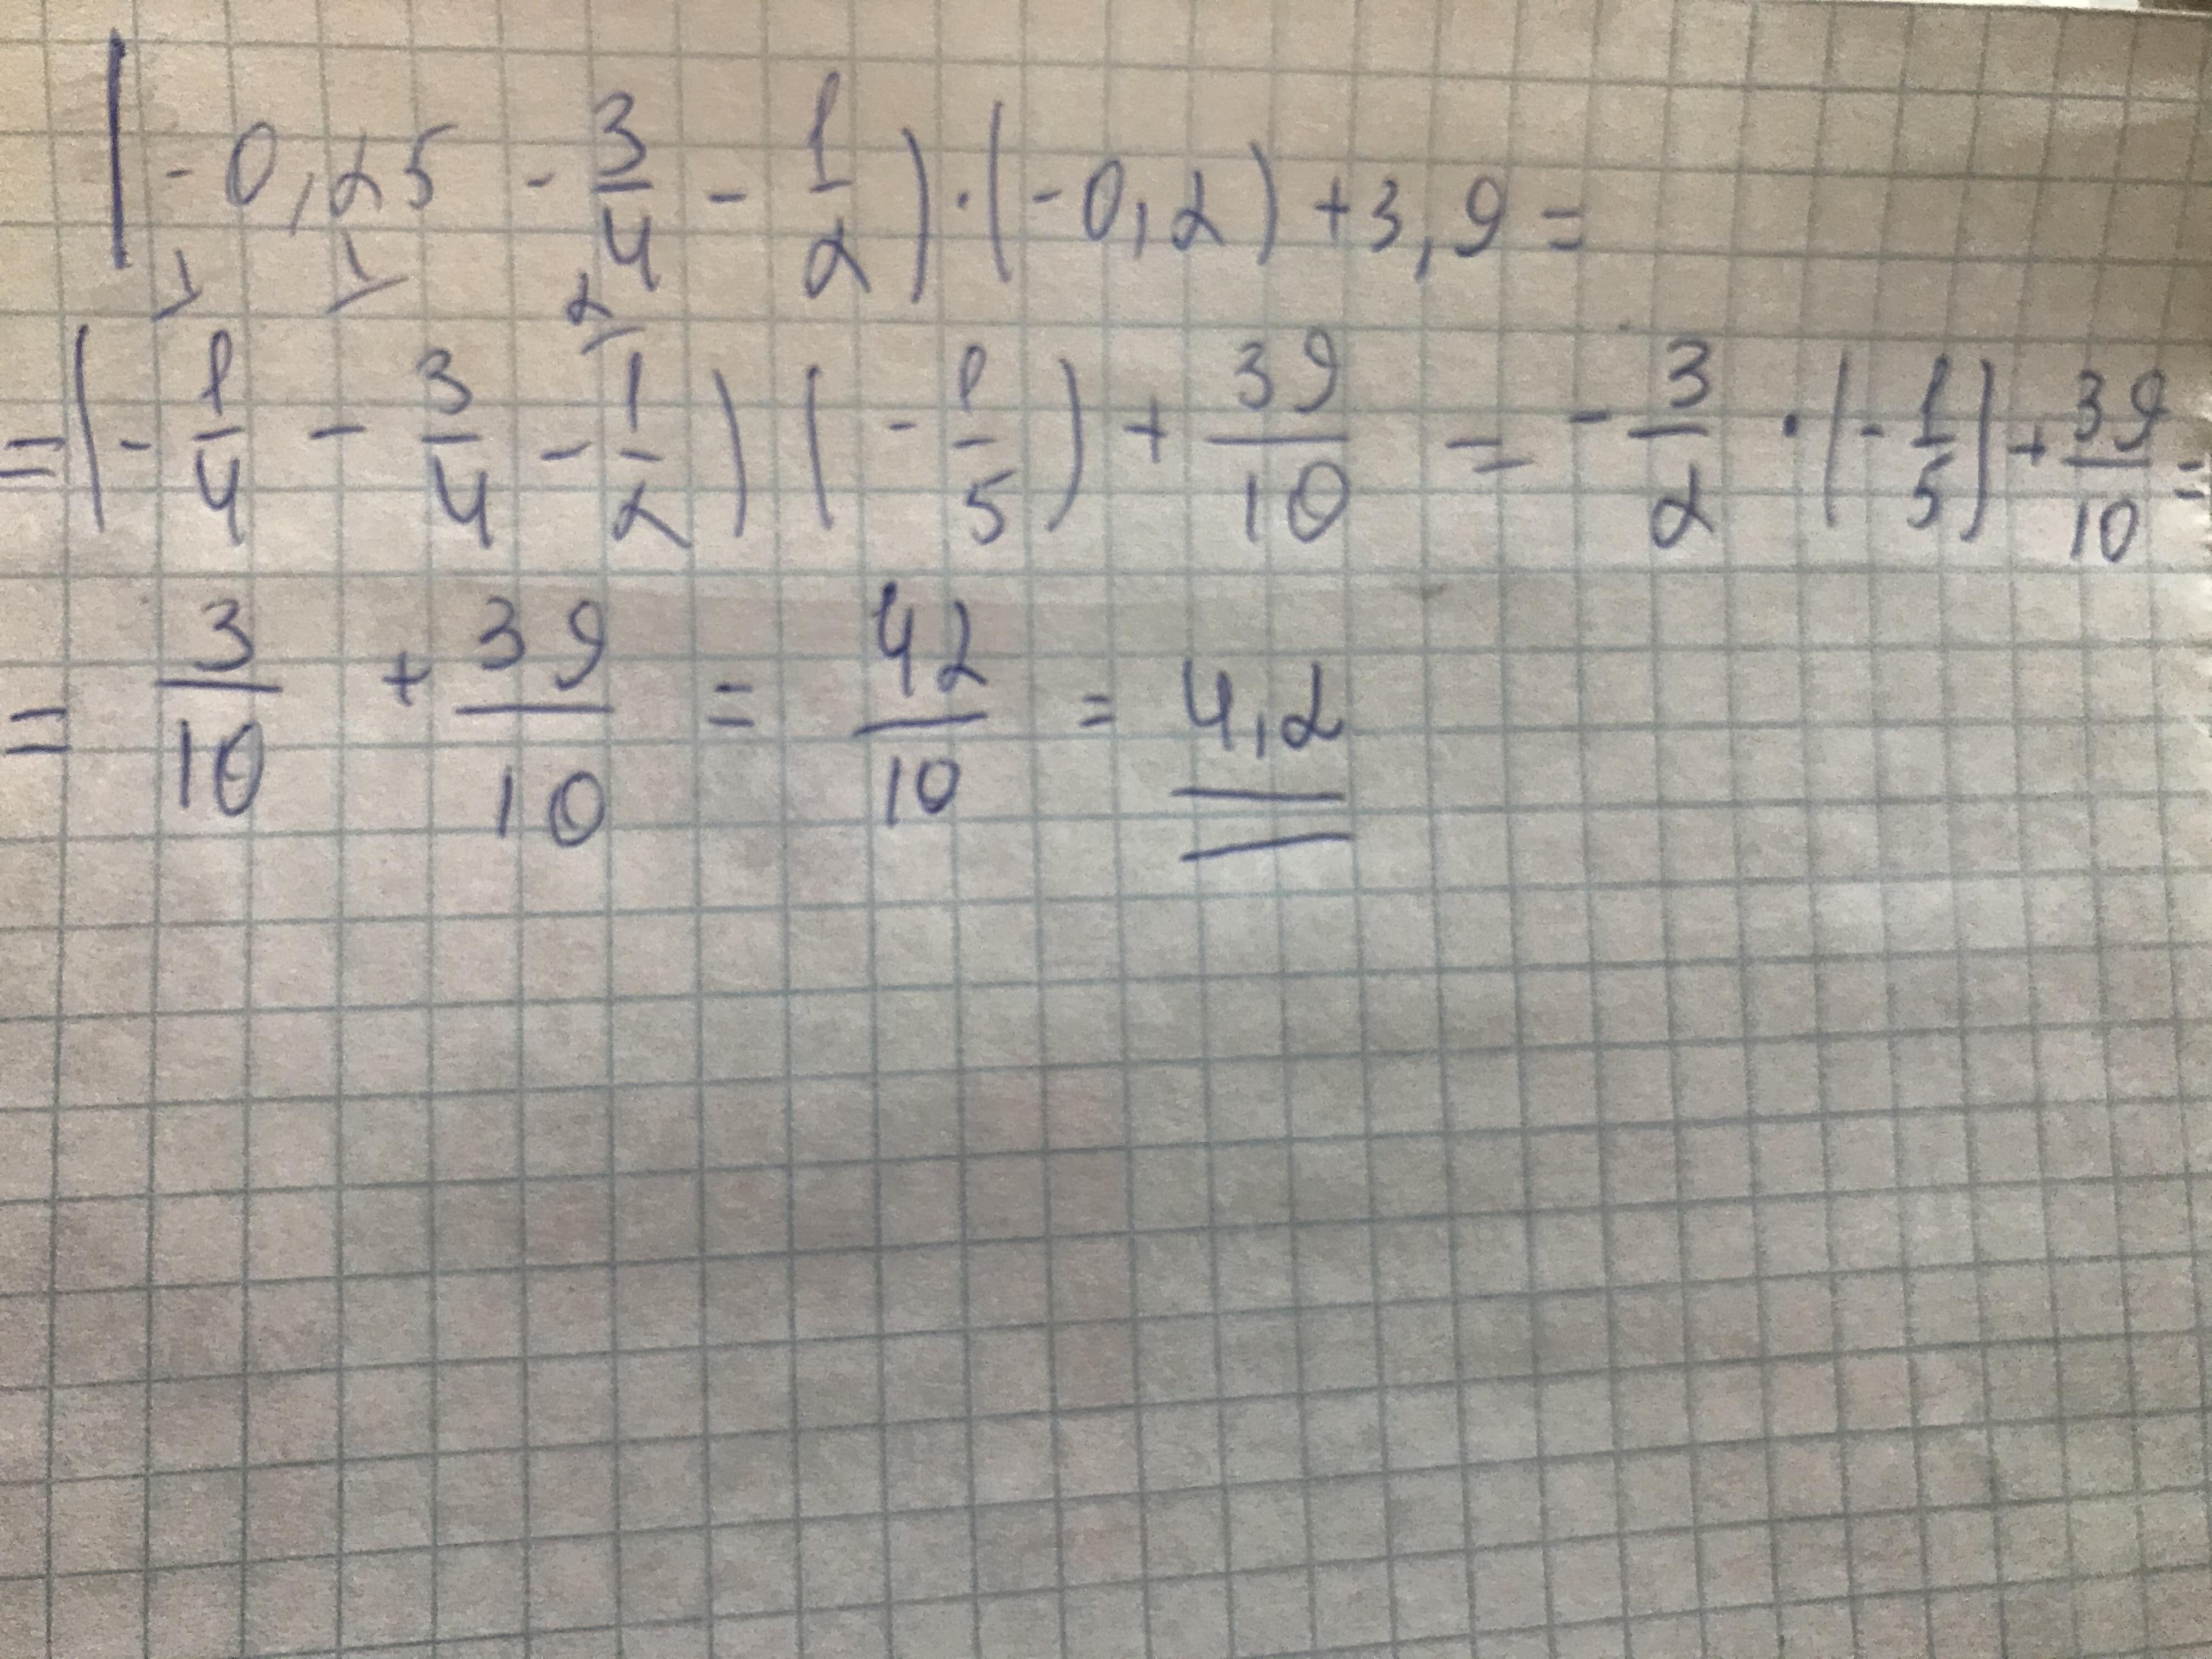 (-0,25 - 3/4 - 1/2) · (-0,2) + 3,9 =
= (-1/4 - 3/4 - 1/2) (-1/5) + 39/10 = -3/2 · (-1/5) + 39/10 =
= 3/10 + 39/10 = 42/10 = 4,2